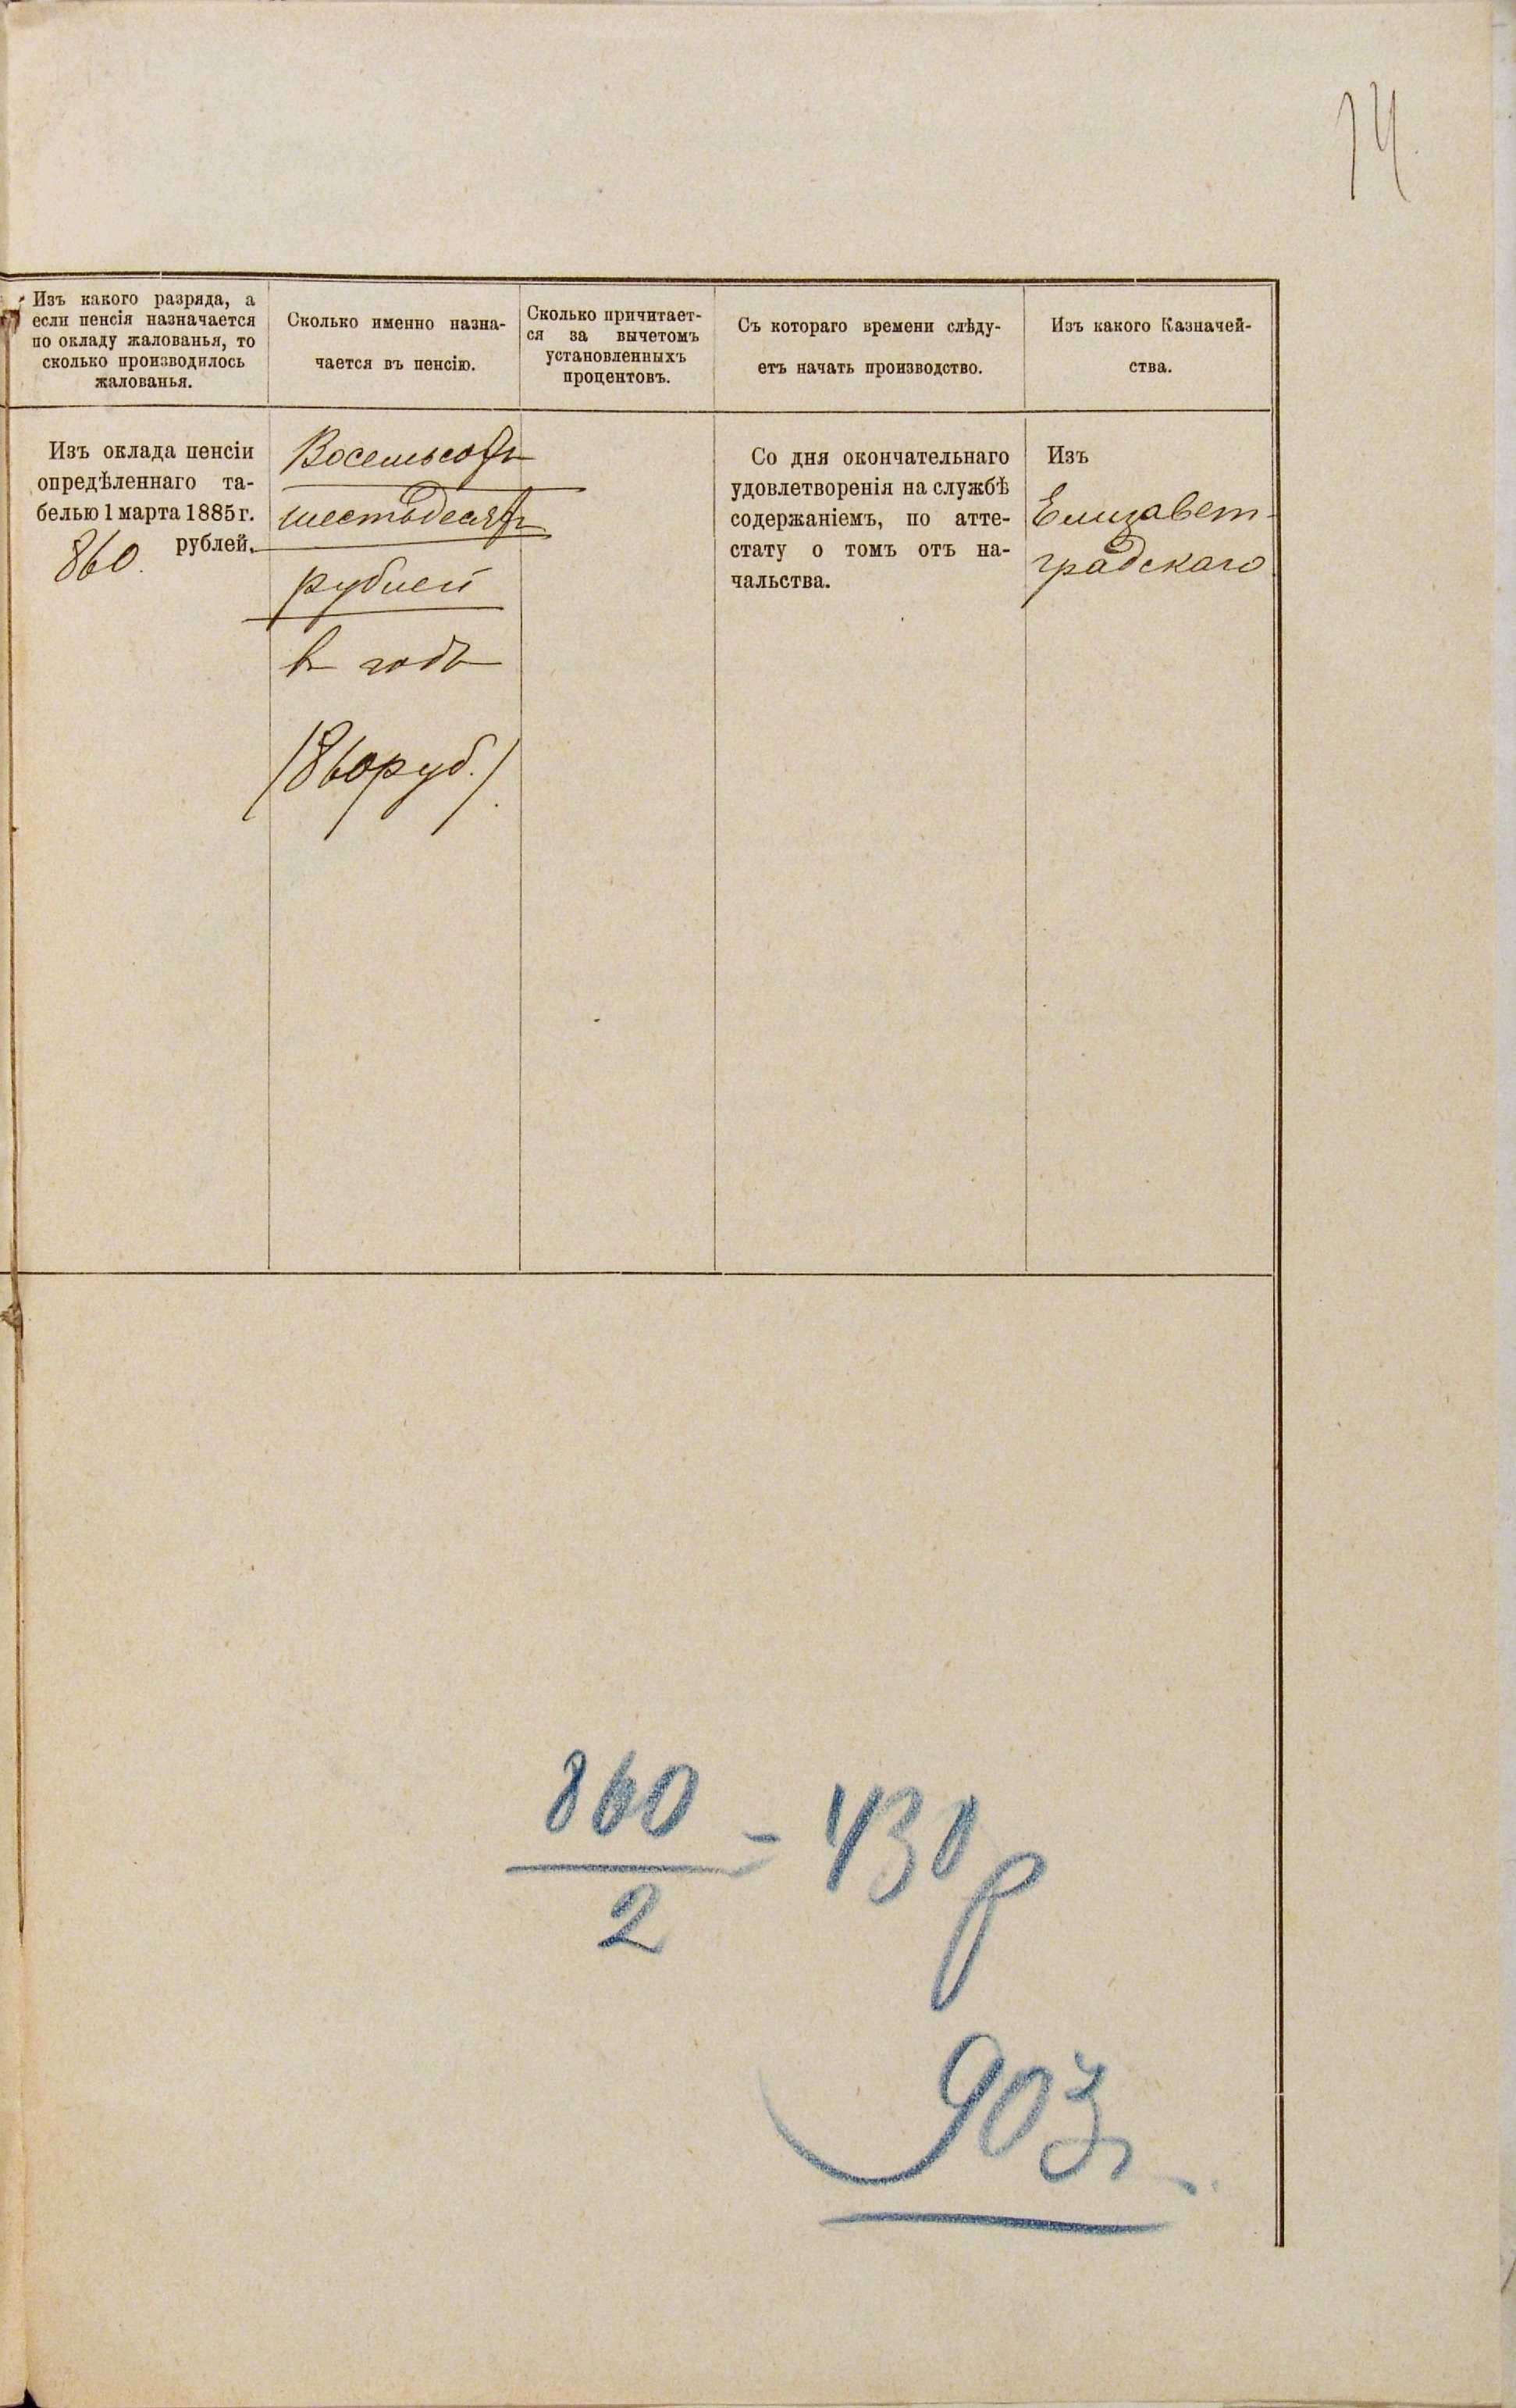 14
Изъ какого разряда, а
если пенсія назначается
по окладу жалованья, то
сколько производилось
жалованья.
Сколько именно назна-
чается въ пенсію.
Сколько причитает-
ся за вычетомъ
установленныхъ
процентовъ.
Съ котораго времени слѣду-
етъ начать производство.
Изъ какого Казначей-
ства.
Изъ оклада пенсіи
опредѣленнаго та-
белью 1 марта 1885 г.
860. рублей.
Восемьсотъ
шестьдесятъ
рублей
въ годъ
(860 руб.).
Со дня окончательнаго
удовлетворенія на службѣ
содержаніемъ, по атте-
стату о томъ отъ на-
чальства.
Изъ
Елизавет-
градскаго
860
2
- 430 р